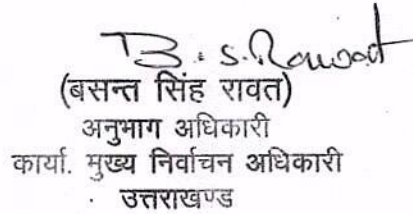 B.S. Rawat
(बसन्त सिंह रावत)
अनुभाग अधिकारी
कार्या. मुख्य निर्वाचन अधिकारी
उत्तराखण्ड